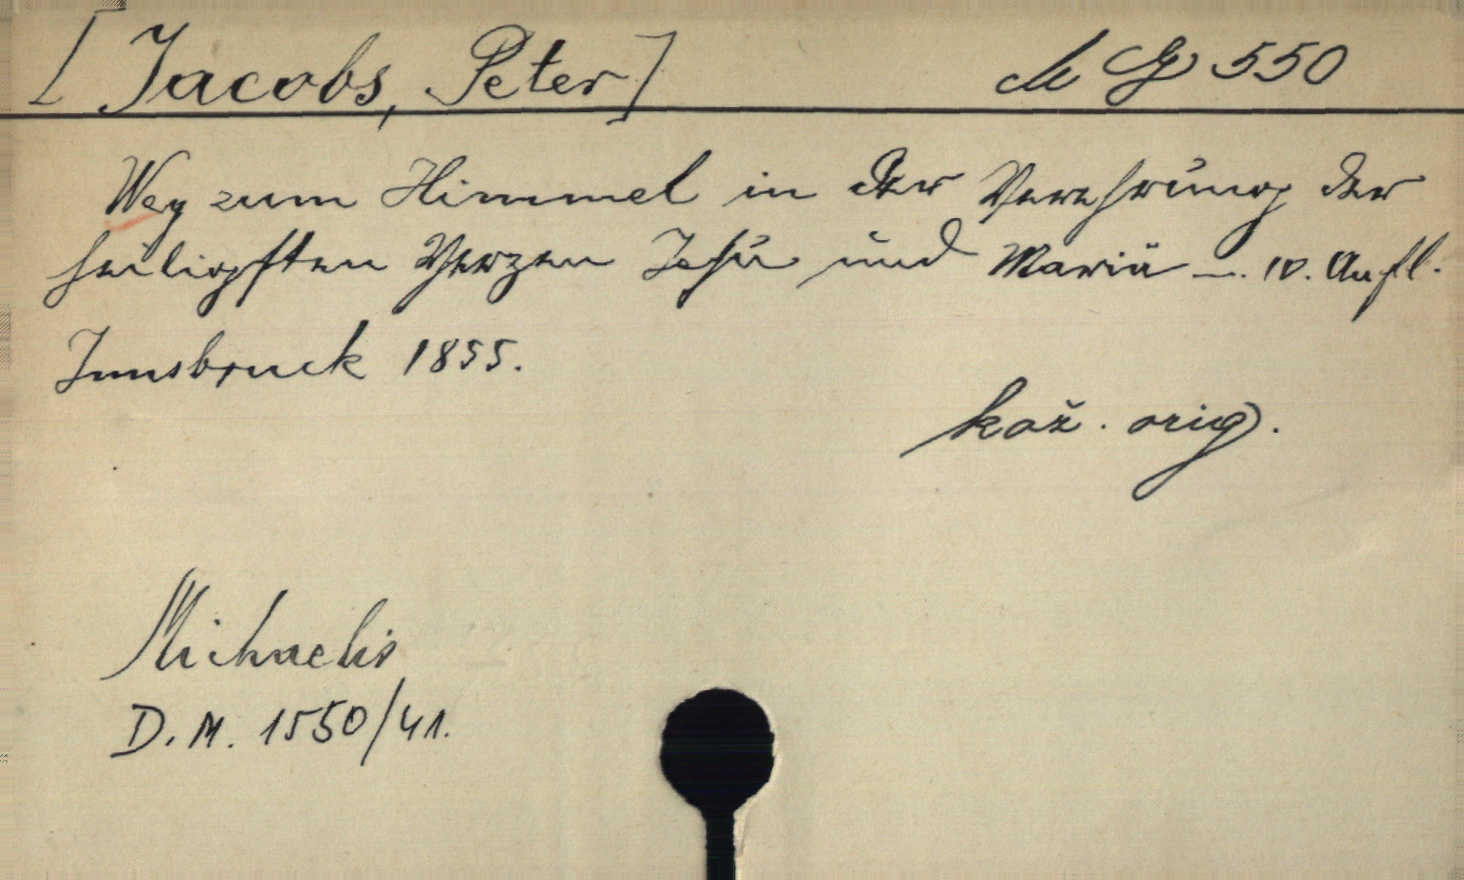 [Jacobs, Peter] M G 550
Weg zum Himmel in der Verehrung der
heiligsten Herzen Jesu und Mariä —. 10. Aufl.
Innsbruck 1855.
kož. orig.
Michaelis
D. M. 1550/41.